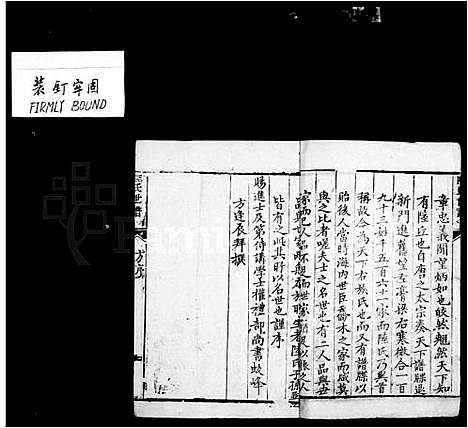 装釘牢固
FIRMLY BOUND
章忠義聞望炳如也皎然趯然天下知
有陸丘也自唐之太宗奏天下譜牒退
新門進舊望左膏粱右寒微合一百
九十三姓千五百六十一家而陸氏乃其首
稱故令為天下右族氏也而又有譜牒以
貽後人當時海內世臣喬木之家而咸莫
與之比者嗟夫士之名世也有二人品與世
皆有之此其所以名世也謹序
賜進士及第侍講學士權禮部尚書蛟峰
方逢辰拜撰
氏世譜
方序